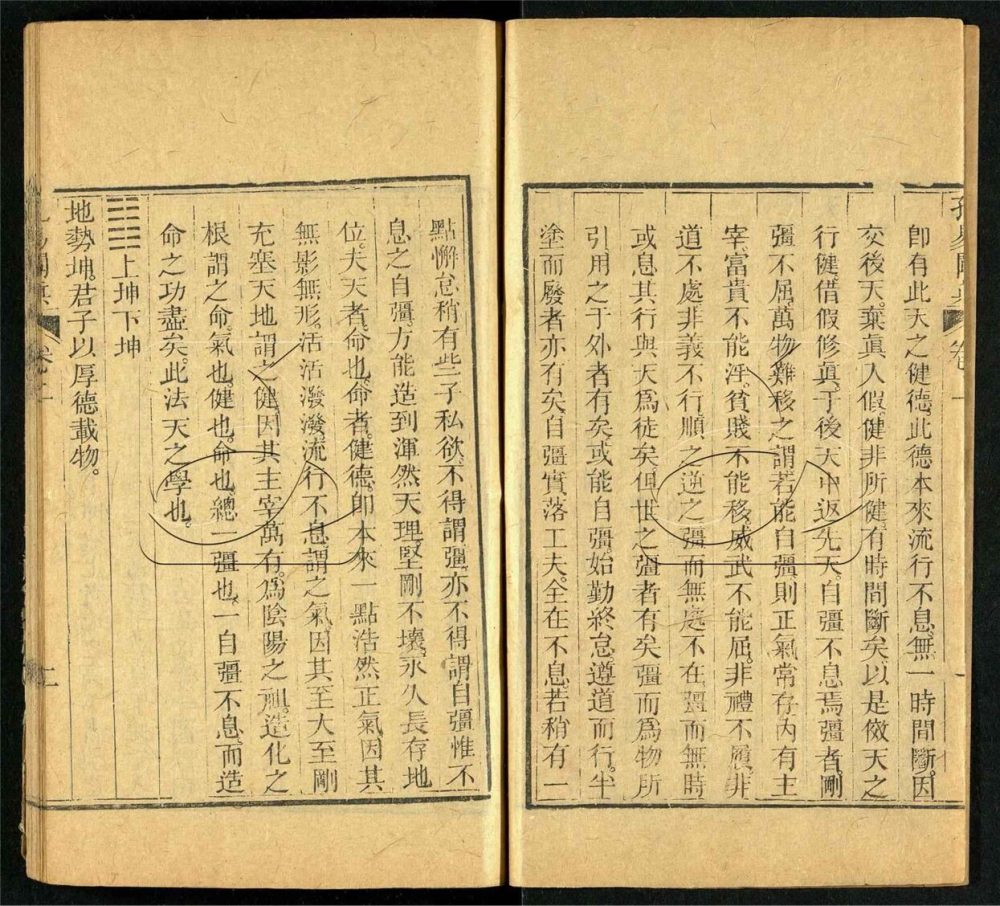 即有此天之健德。此德本來流行不息。無一時間斷。因
交後天。棄真入假。健非所健。有時間斷矣。以是傚天之
行健。借假修真。于後天中返先天。自彊不息焉。彊者。剛
彊不屈。萬物難移之謂。若能自彊。則正氣常存。內有主
宰。富貴不能淫。貧賤不能移。威武不能屈。非禮不履。非
道不處。非義不行。順之逆之。彊而無處不在。彊而無時
或息。其行與天為徒矣。但世之彊者有矣。彊而為物所
引。用之于外者有矣。或能自彊。始勤終怠。遵道而行。半
塗而廢者。亦有矣。自彊實落工夫。全在不息。若稍有一
點懈怠。稍有些子私欲。不得謂彊。亦不得謂自彊。惟不
息之自彊。方能造到渾然天理。堅剛不壞。永久長存地
位。夫天者。命也。命者。健德。即本來一點浩然正氣。因其
無影無形。活活潑潑。流行不息。謂之氣。因其至大至剛
充塞天地。謂之健。因其主宰萬有。為陰陽之祖。造化之
根。謂之命。氣也。健也。命也。總一彊也。一自彊不息。而造
命之功盡矣。此法天之學也。
䷁上坤下坤
地勢坤。君子以厚德載物。